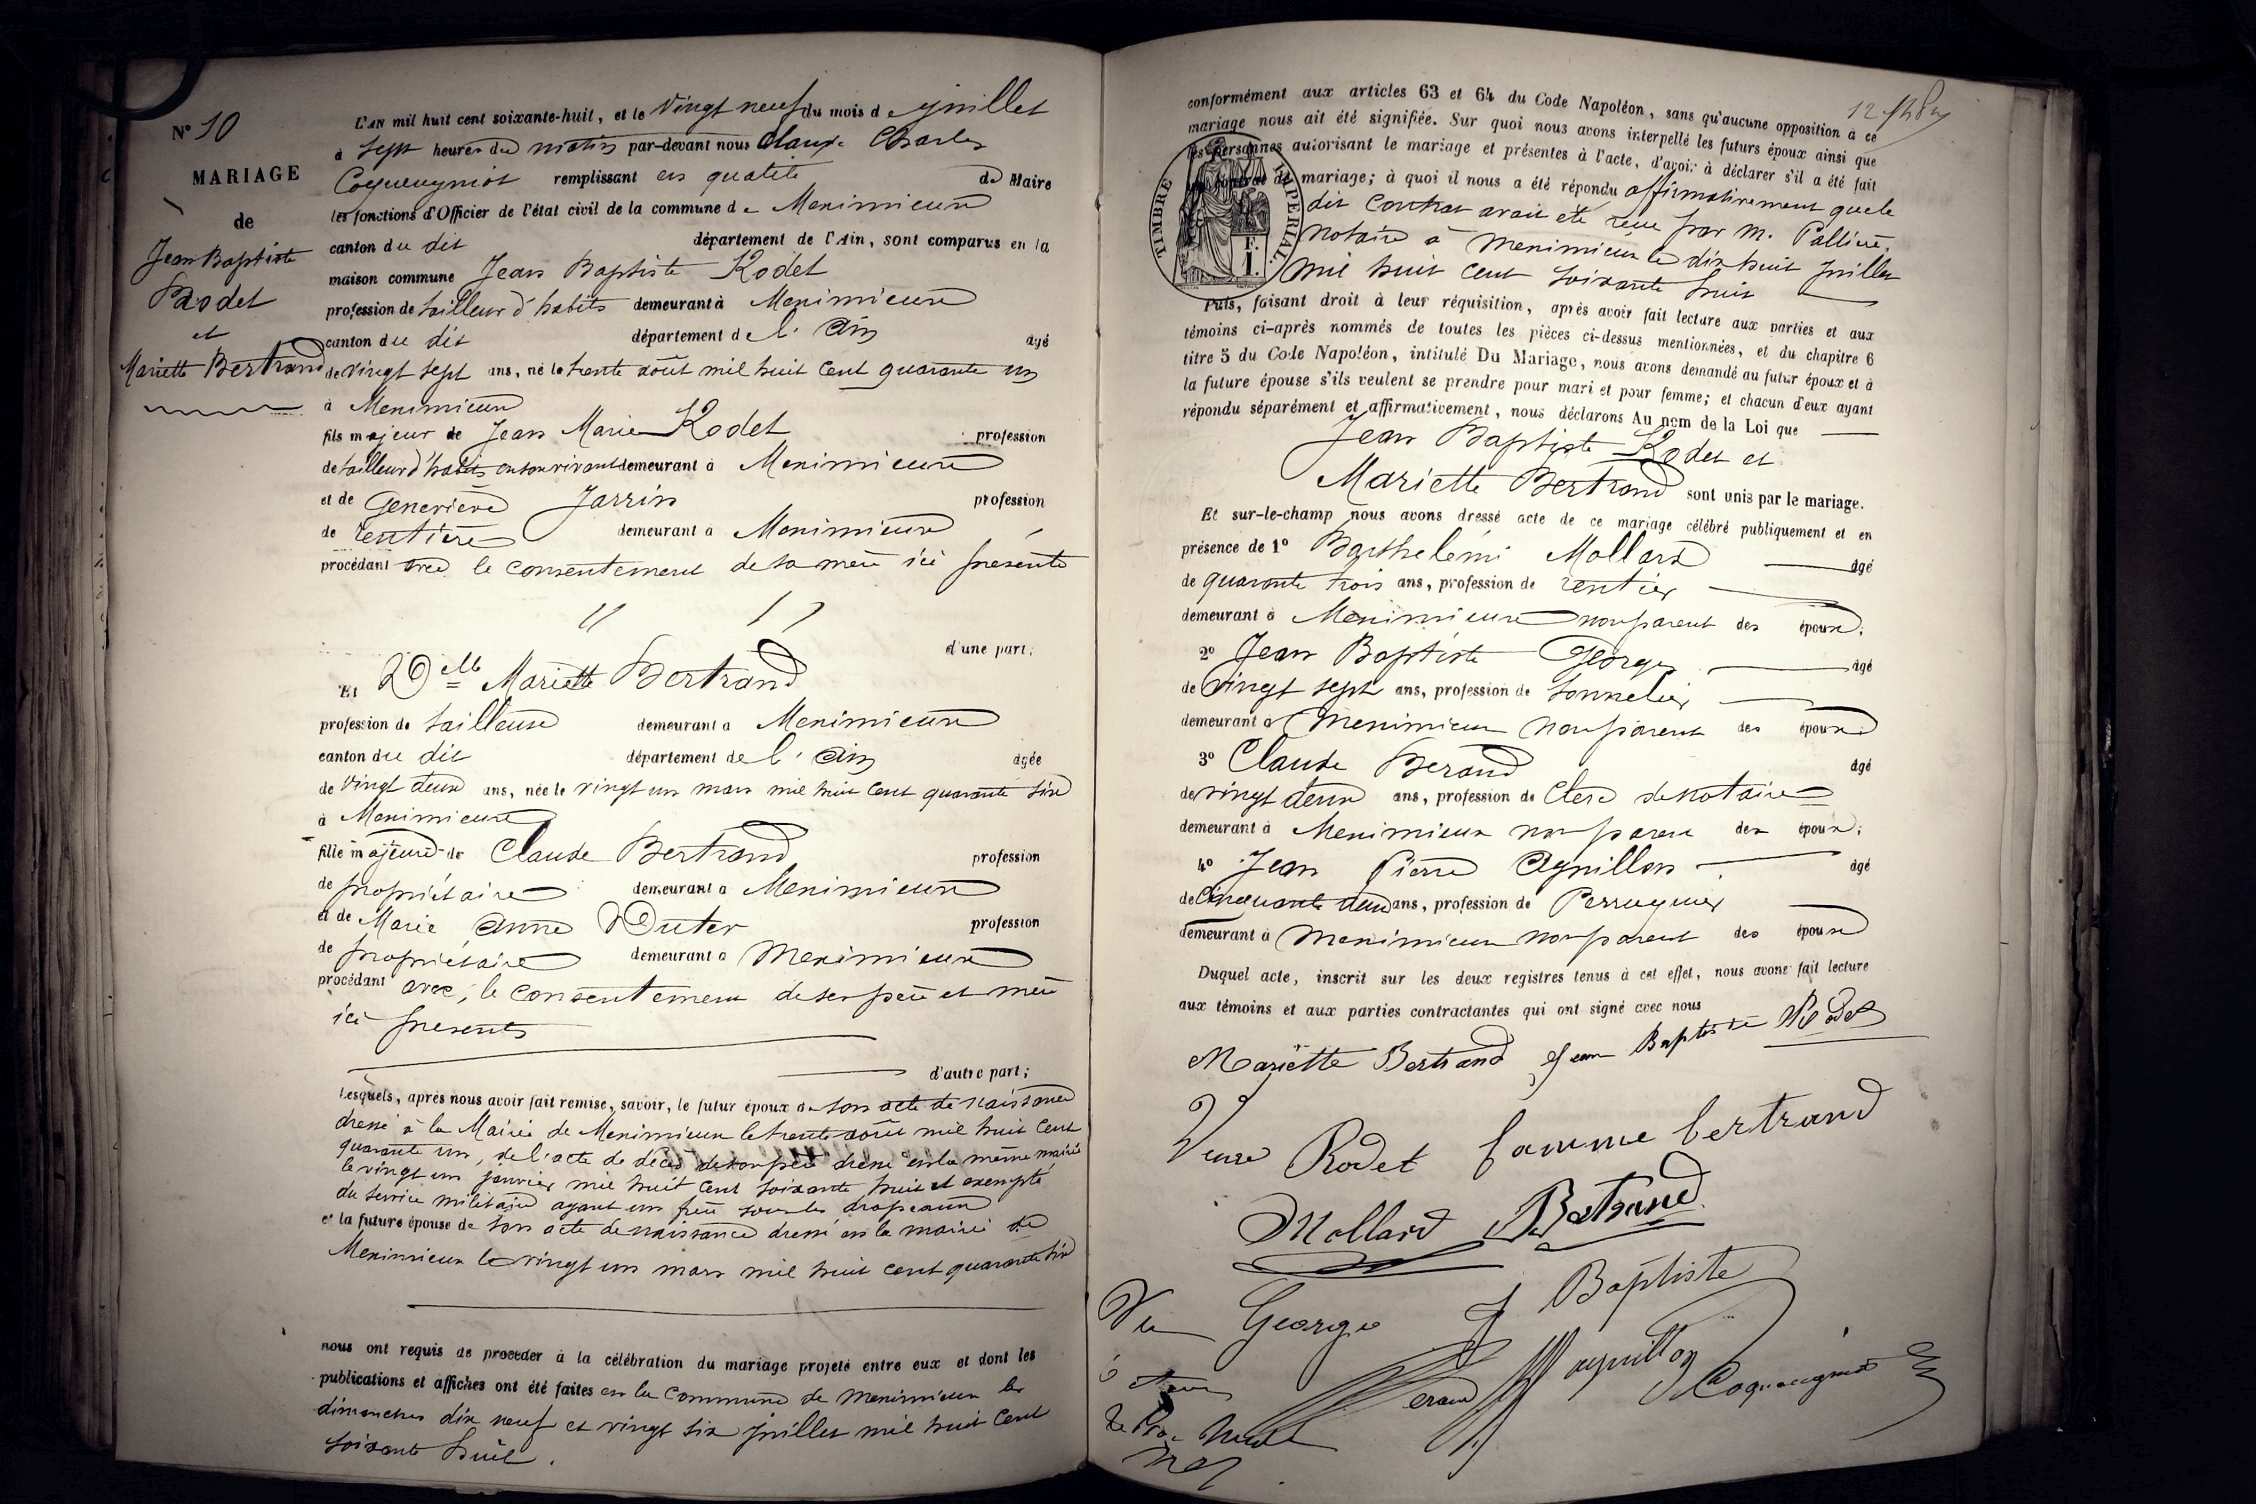 N° 10
MARIAGE
de
Jean Baptiste
Rodet
et
Mariette Bertrand
L'AN mil huit cent soixante-huit, et le vingt neuf du mois de juillet
à sept heures du matin par-devant nous Claude Charles
Coqueugniot remplissant en qualité de Maire
les fonctions d'Officier de l'état civil de la commune de Meximieux
canton du dit département de l'Ain, sont comparus en la
maison commune Jean Baptiste Rodet
profession de tailleur d'habits demeurant à Meximieux
canton du dit département de l'Ain âgé
de vingt sept ans, né le trente août mil huit cent quarante un
à Meximieux
fils majeur de Jean Marie Rodet profession
de tailleur d'habits en son vivant demeurant à Meximieux
et de Geneviève Jarrin profession
de rentière demeurant à Meximieux
procédant avec le consentement de sa mère ici présente
d'une part;
Et Delle Mariette Bertrand
profession de tailleuse demeurant à Meximieux
canton du dit département de l'Ain âgée
de vingt deux ans, née le vingt un mars mil huit cent quarante six
à Meximieux
fille majeure de Claude Bertrand profession
de propriétaire demeurant à Meximieux
et de Marie Anne Duter profession
de propriétaire demeurant à Meximieux
procédant avec le consentement de ses père et mère
ici présents
d'autre part;
Lesquels, après nous avoir fait remise, savoir, le futur époux de son acte de naissance
dressé à la Mairie de Meximieux le trente août mil huit cent
quarante un, de l'acte de décès de son père dressé en la même mairie
le vingt un janvier mil huit cent soixante huit et exempté
du service militaire ayant un frère sous les drapeaux
et la future épouse de son acte de naissance dressé en la mairie de
Meximieux le vingt un mars mil huit cent quarante six
nous ont requis de procéder à la célébration du mariage projeté entre eux et dont les
publications et affiches ont été faites en la commune de Meximieux les
dimanches dix neuf et vingt six juillet mil huit cent
soixante huit.
conformément aux articles 63 et 64 du Code Napoléon, sans qu'aucune opposition à ce
mariage nous ait été signifiée. Sur quoi nous avons interpellé les futurs époux ainsi que
les personnes autorisant le mariage et présentes à l'acte, d'avoir à déclarer s'il a été fait
un contrat de mariage; à quoi il nous a été répondu affirmativement que le
dit contrat avait été reçu par M. Pallière,
notaire à Meximieux le dix huit juillet
mil huit cent soixante huit
TIMBRE IMPERIAL.
Puis, faisant droit à leur réquisition, après avoir fait lecture aux parties et aux
témoins ci-après nommés de toutes les pièces ci-dessus mentionnées, et du chapitre 6
titre 5 du Code Napoléon, intitulé Du Mariage, nous avons demandé au futur époux et à
la future épouse s'ils veulent se prendre pour mari et pour femme; et chacun d'eux ayant
répondu séparément et affirmativement, nous déclarons Au nom de la Loi que
Jean Baptiste Rodet et
Mariette Bertrand sont unis par le mariage.
Et sur-le-champ nous avons dressé acte de ce mariage célébré publiquement et en
présence de 1° Barthelémi Mollard âgé
de quarante trois ans, profession de rentier
demeurant à Meximieux non parent des époux;
2° Jean Baptiste George âgé
de vingt sept ans, profession de tonnelier
demeurant à Meximieux non parent des époux
3° Claude Berand âgé
de vingt deux ans, profession de Clerc de notaire
demeurant à Meximieux non parent des époux;
4° Jean Pierre Aguillon âgé
de cinquante deux ans, profession de Perruquier
demeurant à Meximieux non parent des époux
Duquel acte, inscrit sur les deux registres tenus à cet effet, nous avons fait lecture
aux témoins et aux parties contractantes qui ont signé avec nous
Mariette Bertrand Jean Baptiste Rodet
Veuve Rodet famme bertrand
Mollard Bertrand
George J Baptiste
Berand aguillon Coqueugniot
Vu